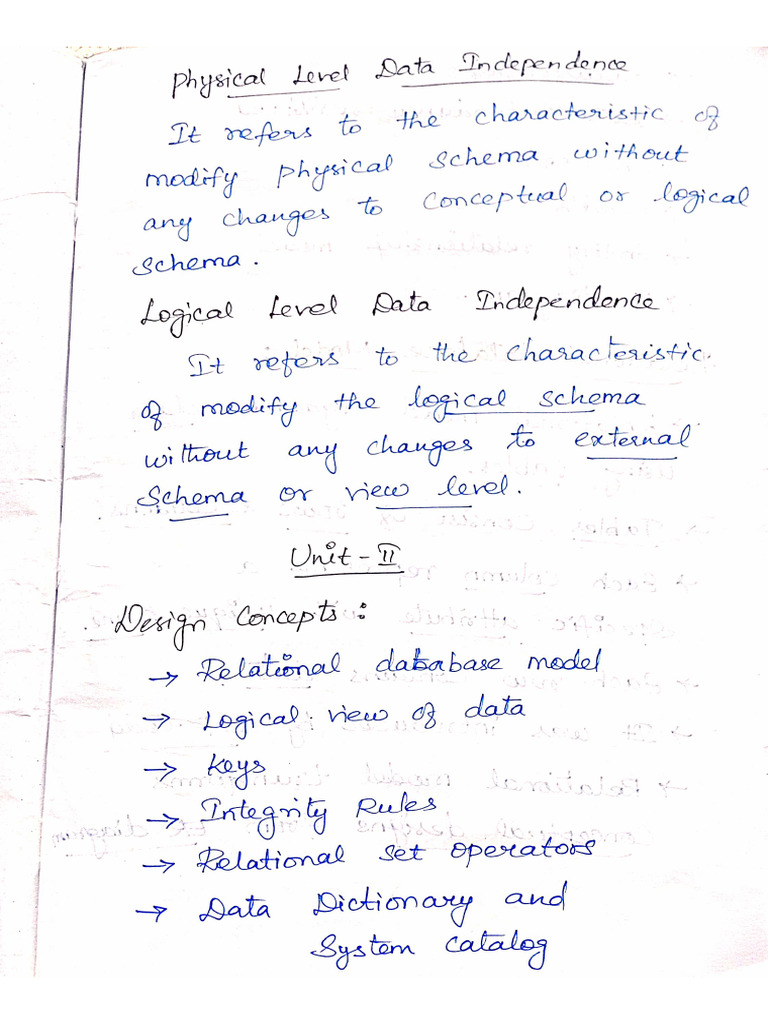 Physical Level Data Independence
It refers to the characteristic of
modify physical schema without
any changes to conceptual or logical
schema.
Logical Level Data Independence
It refers to the characteristic.
of modify the logical schema
without any changes to external
schema or view level.
Unit-II
Design Concepts:
→ Relational database model
→ Logical view of data
→ Keys
→ Integrity Rules
→ Relational set operators
→ Data Dictionary and
System catalog